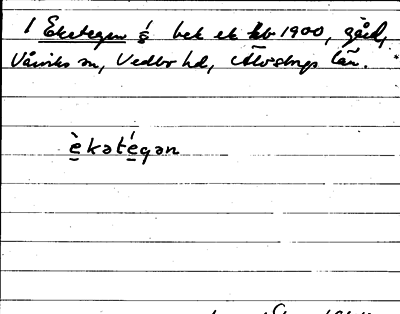 1 Ekategen § bek ek kb 1900, gård,
Vårviks sn, Vedbo hd, Älvsborgs län.
è̱kɘté̱gɘn